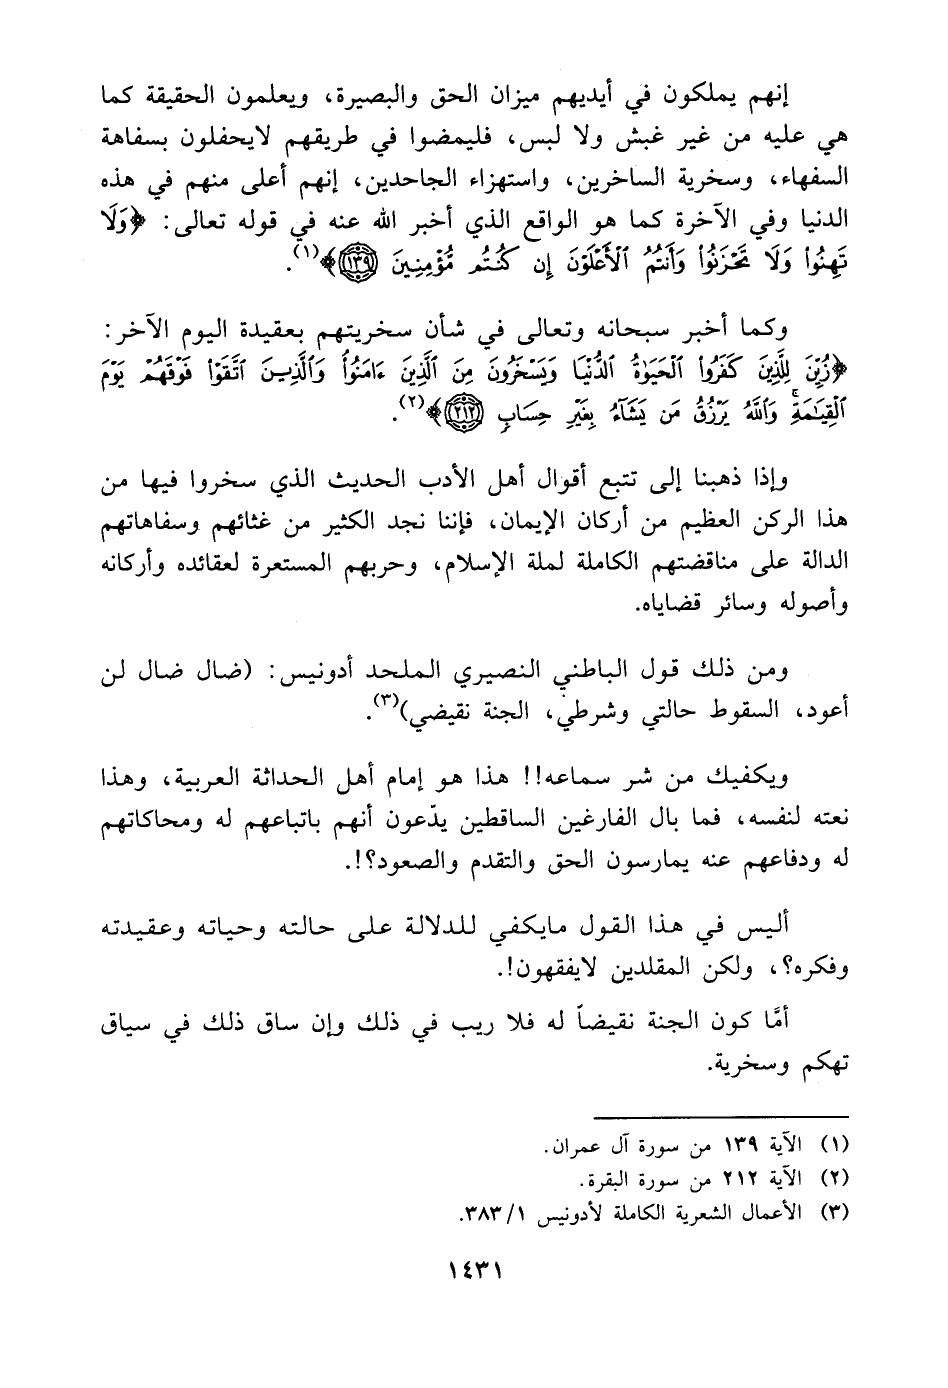 إنهم يملكون في أيديهم ميزان الحق والبصيرة، ويعلمون الحقيقة كما
هي عليه من غير غبش ولا لبس، فليمضوا في طريقهم لايحفلون بسفاهة
السفهاء، وسخرية الساخرين، واستهزاء الجاحدين، إنهم أعلى منهم في هذه
الدنيا وفي الآخرة كما هو الواقع الذي أخبر الله عنه في قوله تعالى: ﴿وَلَا
تَهِنُوا۟ وَلَا تَحْزَنُوا۟ وَأَنتُمُ ٱلْأَعْلَوْنَ إِن كُنتُم مُّؤْمِنِينَ ۝١٣٩﴾(١).
وكما أخبر سبحانه وتعالى في شأن سخريتهم بعقيدة اليوم الآخر:
﴿زُيِّنَ لِلَّذِينَ كَفَرُوا۟ ٱلْحَيَوٰةُ ٱلدُّنْيَا وَيَسْخَرُونَ مِنَ ٱلَّذِينَ ءَامَنُوا۟ وَٱلَّذِينَ ٱتَّقَوْا۟ فَوْقَهُمْ يَوْمَ
ٱلْقِيَـٰمَةِ ۗ وَٱللَّهُ يَرْزُقُ مَن يَشَآءُ بِغَيْرِ حِسَابٍ ۝٢١٢﴾(٢).
وإذا ذهبنا إلى تتبع أقوال أهل الأدب الحديث الذي سخروا فيها من
هذا الركن العظيم من أركان الإيمان، فإننا نجد الكثير من غثائهم وسفاهاتهم
الدالة على مناقضتهم الكاملة لملة الإسلام، وحربهم المستعرة لعقائده وأركانه
وأصوله وسائر قضاياه.
ومن ذلك قول الباطني النصيري الملحد أدونيس: (ضال ضال لن
أعود، السقوط حالتي وشرطي، الجنة نقيضي)(٣).
ويكفيك من شر سماعه!! هذا هو إمام أهل الحداثة العربية، وهذا
نعته لنفسه، فما بال الفارغين الساقطين يدّعون أنهم باتباعهم له ومحاكاتهم
له ودفاعهم عنه يمارسون الحق والتقدم والصعود؟!.
أليس في هذا القول مايكفي للدلالة على حالته وحياته وعقيدته
وفكره؟، ولكن المقلدين لايفقهون!.
أمَّا كون الجنة نقيضاً له فلا ريب في ذلك وإن ساق ذلك في سياق
تهكم وسخرية.
(١) الآية ١٣٩ من سورة آل عمران.
(٢) الآية ٢١٢ من سورة البقرة.
(٣) الأعمال الشعرية الكاملة لأدونيس ١/ ٣٨٣.
١٤٣١